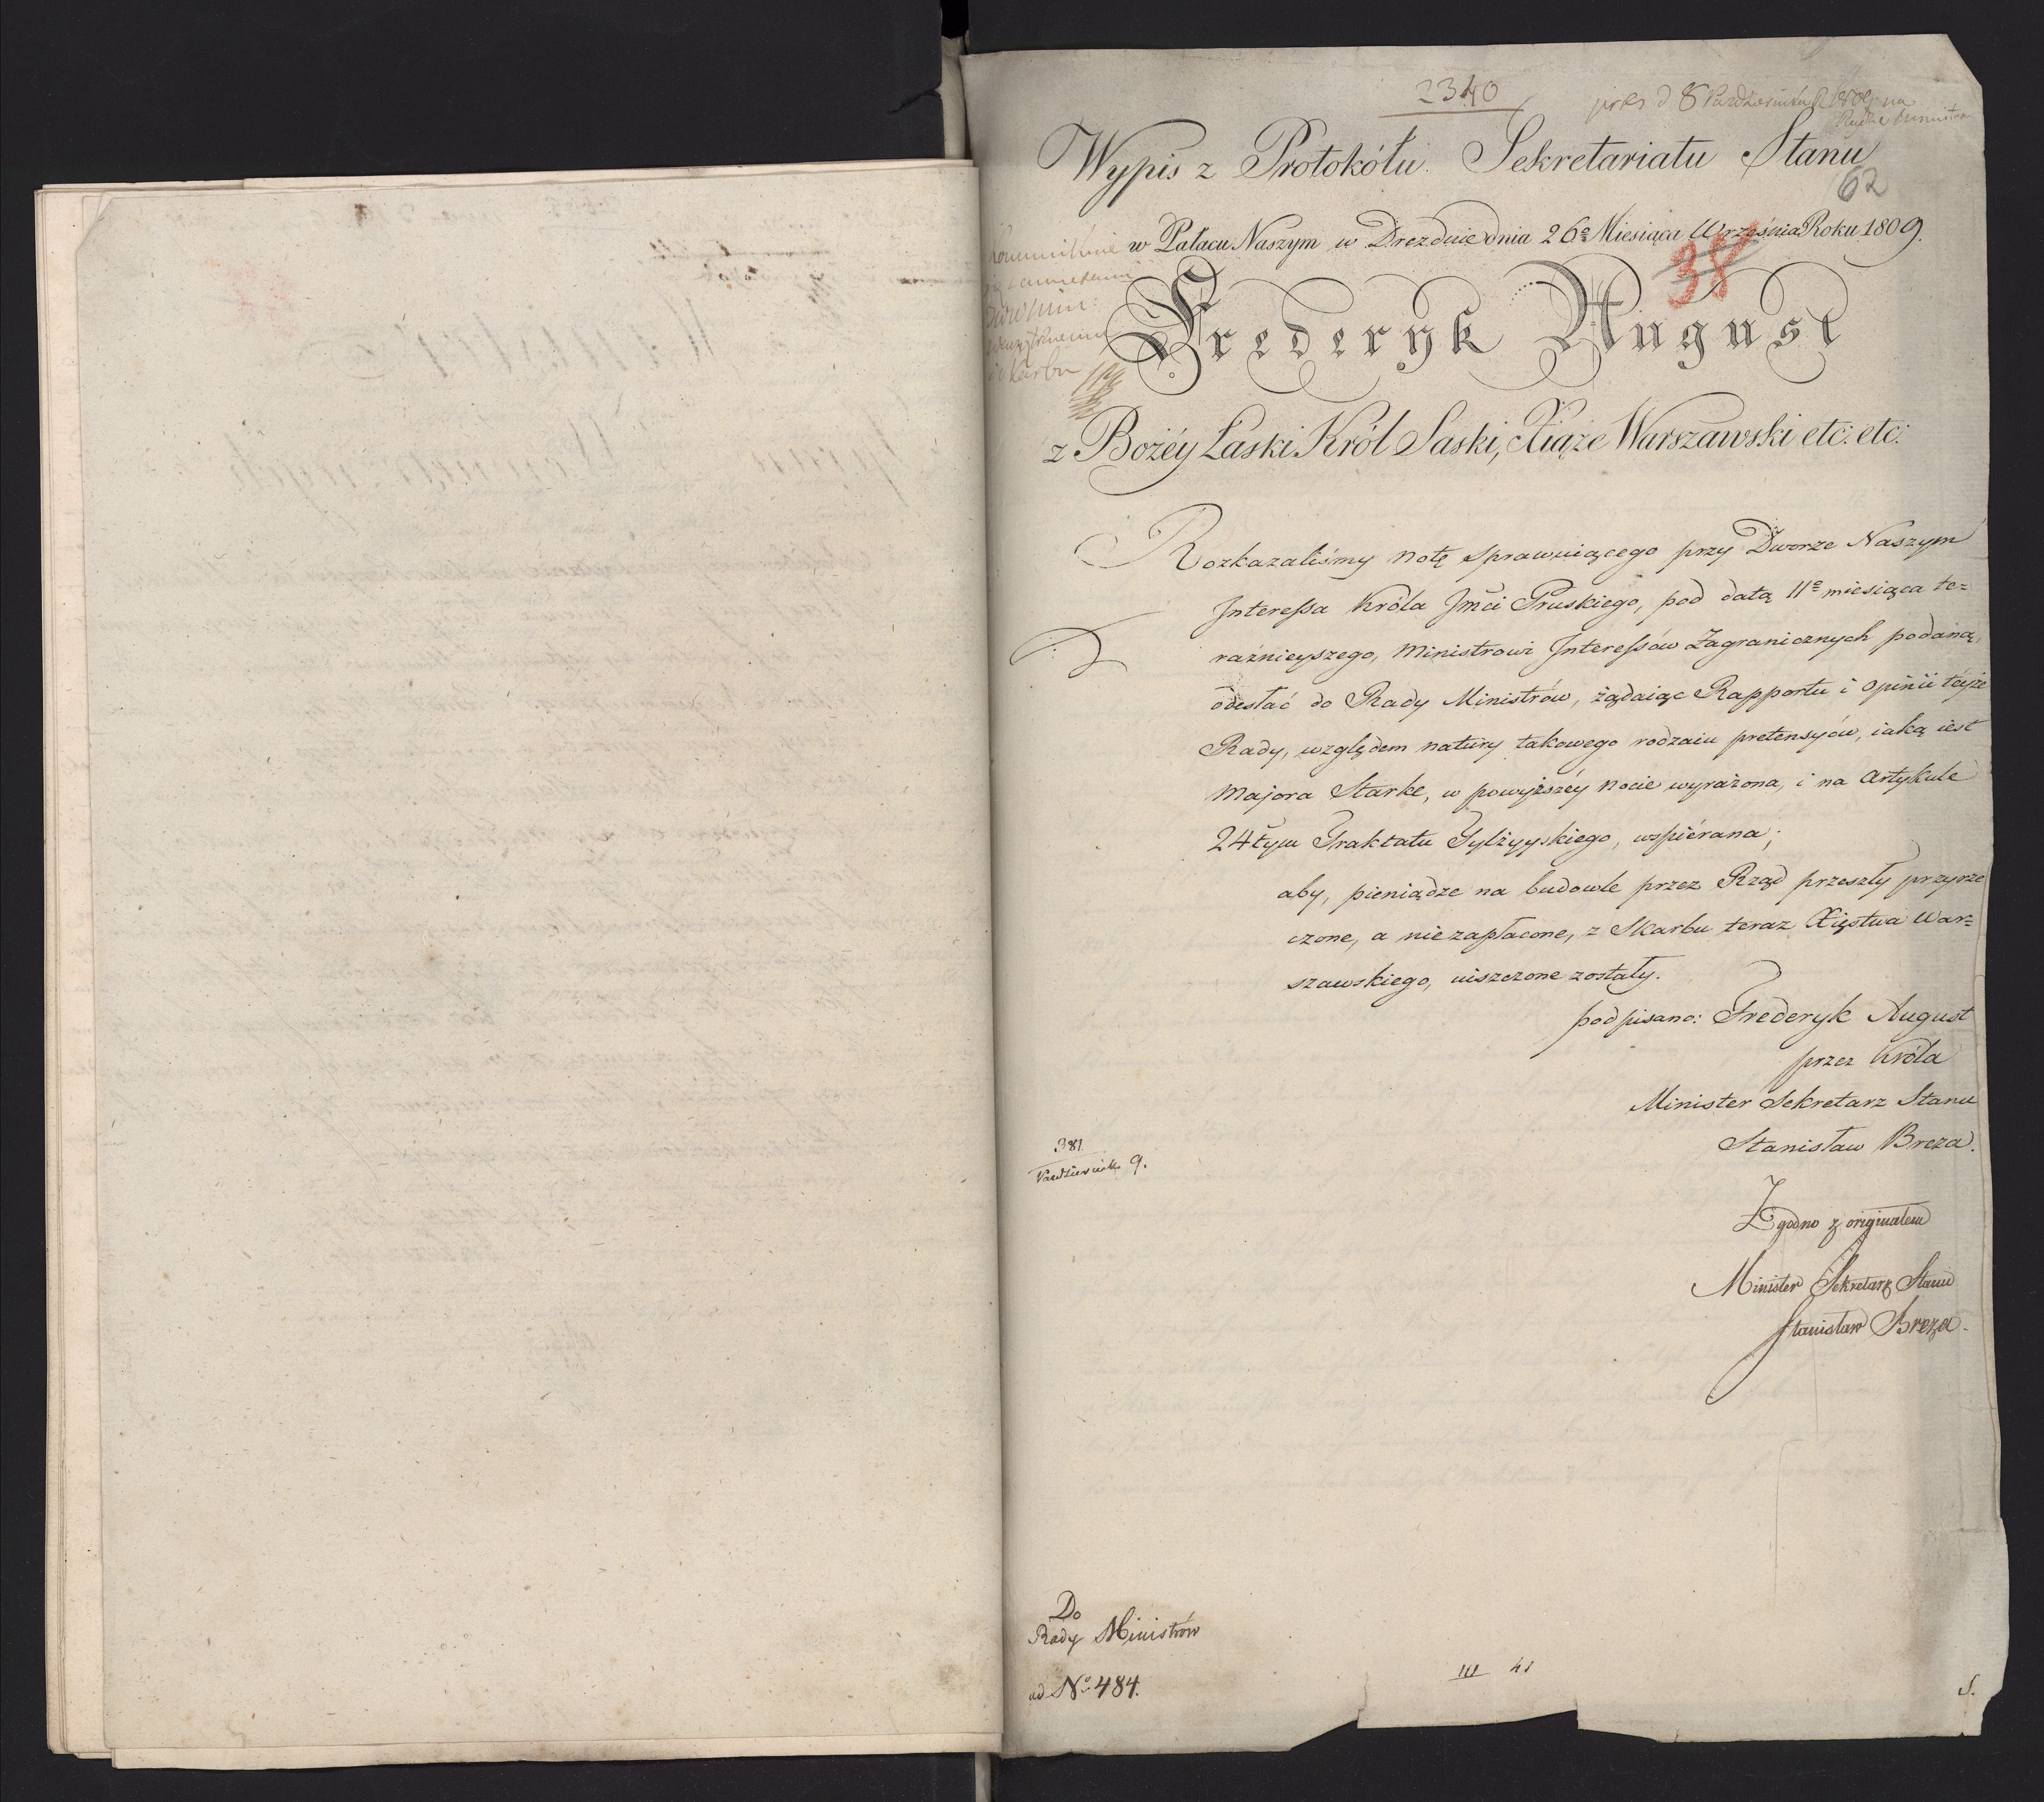 2340
8 Października 1809 na
Radzie Ministrów
Wypis z Protokółu Sekretariatu Stanu
62
w Pałacu Naszym w Dreznie dnia 26º Miesiąca Września Roku 1809.
38
Skarbu
Frederyk August
z Bożéy Łaski Król Saski, Xiąże Warszawski etc: etc:
Rozkazaliśmy notę sprawuiącego przy Dworze Naszym
Interessa Króla Jmci Pruskiego, pod datą 11º miesiąca te=
raznieyszego, Ministrowi Interessów Zagranicznych podaną,
odesłać do Rady Ministrów, żądaiąc Rapportu i opinii téyże
Rady, względem natury takowego rodzaiu pretensyów, iaką iest
Majora Starke, w powyższéy nocie wyrażona, i na Artykule
24tym Traktatu Tylżyyskiego, wspiérana;
aby, pieniądze na budowle przez Rząd przeszły przyrze
czone, a niezapłacone, z Skarbu teraz Xięstwa War=
szawskiego, uiszczone zostały.
podpisano: Frederyk August
przez Króla
Minister Sekretarz Stanu
Stanisław Breza.
381
Październik 9.
Zgodno z originałem
Minister Sekretarz Stanu
Stanisław Breza.
Do
Rady Ministrów
ad Nº 484.
III 41
S.